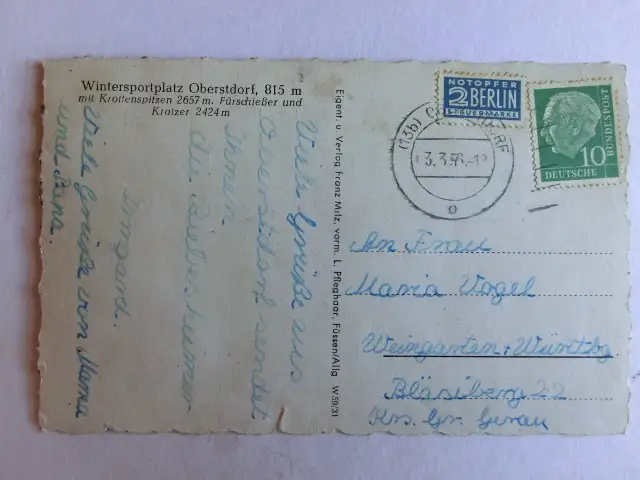 Wintersportplatz Oberstdorf, 815 m
mit Krottenspitzen 2657 m. Fürschießer und
Kratzer 2424 m
Viele Grüße aus
Oberstdorf sendet
Ihnen
die Biebesheimer
Irmgard.
Viele Grüße von Mama
und Papa.
Eigent. u. Verlag Franz Milz, vorm. L. Pfleghaar, Füssen/Allg W 59/31
NOTOPFER
2 BERLIN
STEUERMARKE
(13b) OBERSTDORF
3.3.56.-1
DEUTSCHE BUNDESPOST
10
An Frau
Maria Vogel
Weingarten, Württbg
Bläsiberg 22
Krs. Gr. Gerau